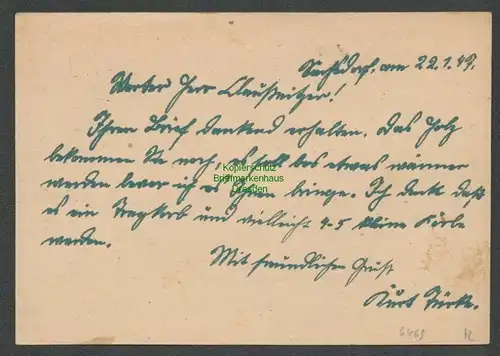 Sachsdorf, am 22.1.49.
Werter Herr Claußnitzer!
Ihren Brief dankend erhalten. Das Holz
bekommen Sie noch, es soll bos etwas wärmer
werden bevor ich es Ihnen bringe. Ich denk daß
es ein Tragkorb und vielleicht 4-5 kleine Körbe
werden.
Mit freundlichen Gruß
Kurt
Kopierschutz
Briefmarkenhaus
Dresden
6463